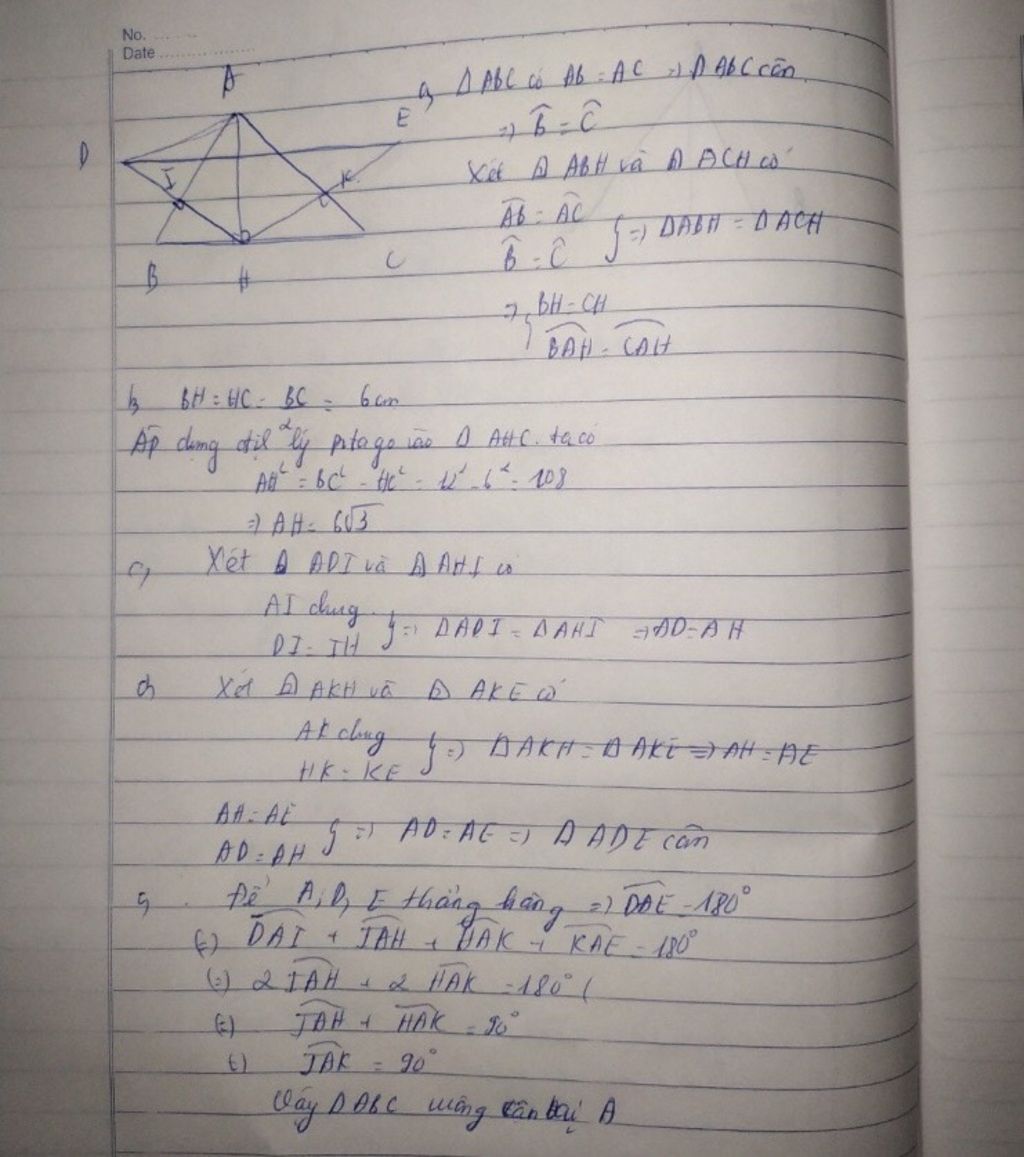 No. ........
Date ....................
A
D
E
I
K
B
H
C
a, Δ ABC có AB = AC => Δ ABC cân
=> B̂ = Ĉ
Xét Δ ABH và Δ ACH có
A͡B = A͡C
B̂ = Ĉ } => ΔABH = ΔACH
=> { BH = CH
BAH = CAH
b, BH = HC = BC/2 = 6cm
Áp dụng lý pitago vào Δ AHC. ta có
AH² = BC² - HC² = 12² - 6² = 108
=> AH = 6√3
c, Xét Δ ADI và Δ AHI có
AI chung
DI = IH } => ΔADI = ΔAHI => AD = AH
d, Xét Δ AKH và Δ AKE có
AK chung
HK = KE } => Δ AKH = Δ AKE => AH = AE
AH = AE
AD = AH } => AD = AE => Δ ADE cân
Để A, D, E thẳng hàng => DAE = 180°
(=) DAI + IAH + HAK + KAE = 180°
(=) 2 IAH + 2 HAK = 180° (
(=) IAH + HAK = 90°
(=) IAK = 90°
Vậy ΔABC vuông cân tại A